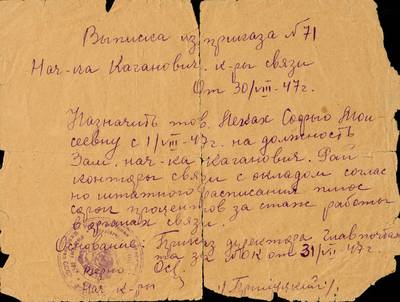 Выписка из приказа №71
Нач-ка Каганович. к-ры связи
От 30/VIII-47г.
Назначить тов. Нехах Софию Мои-
сеевну с 1/VIII-47г. на должность
Зам. нач-ка Каганович. Рай-
конторы связи с окладом соглас
но штатного расписания плюс
сорок процентов за стаж работы
в органах связи.
Основание: Приказ директора Главпочтам
та за № от 31/VII 47г.
Нач к-ры